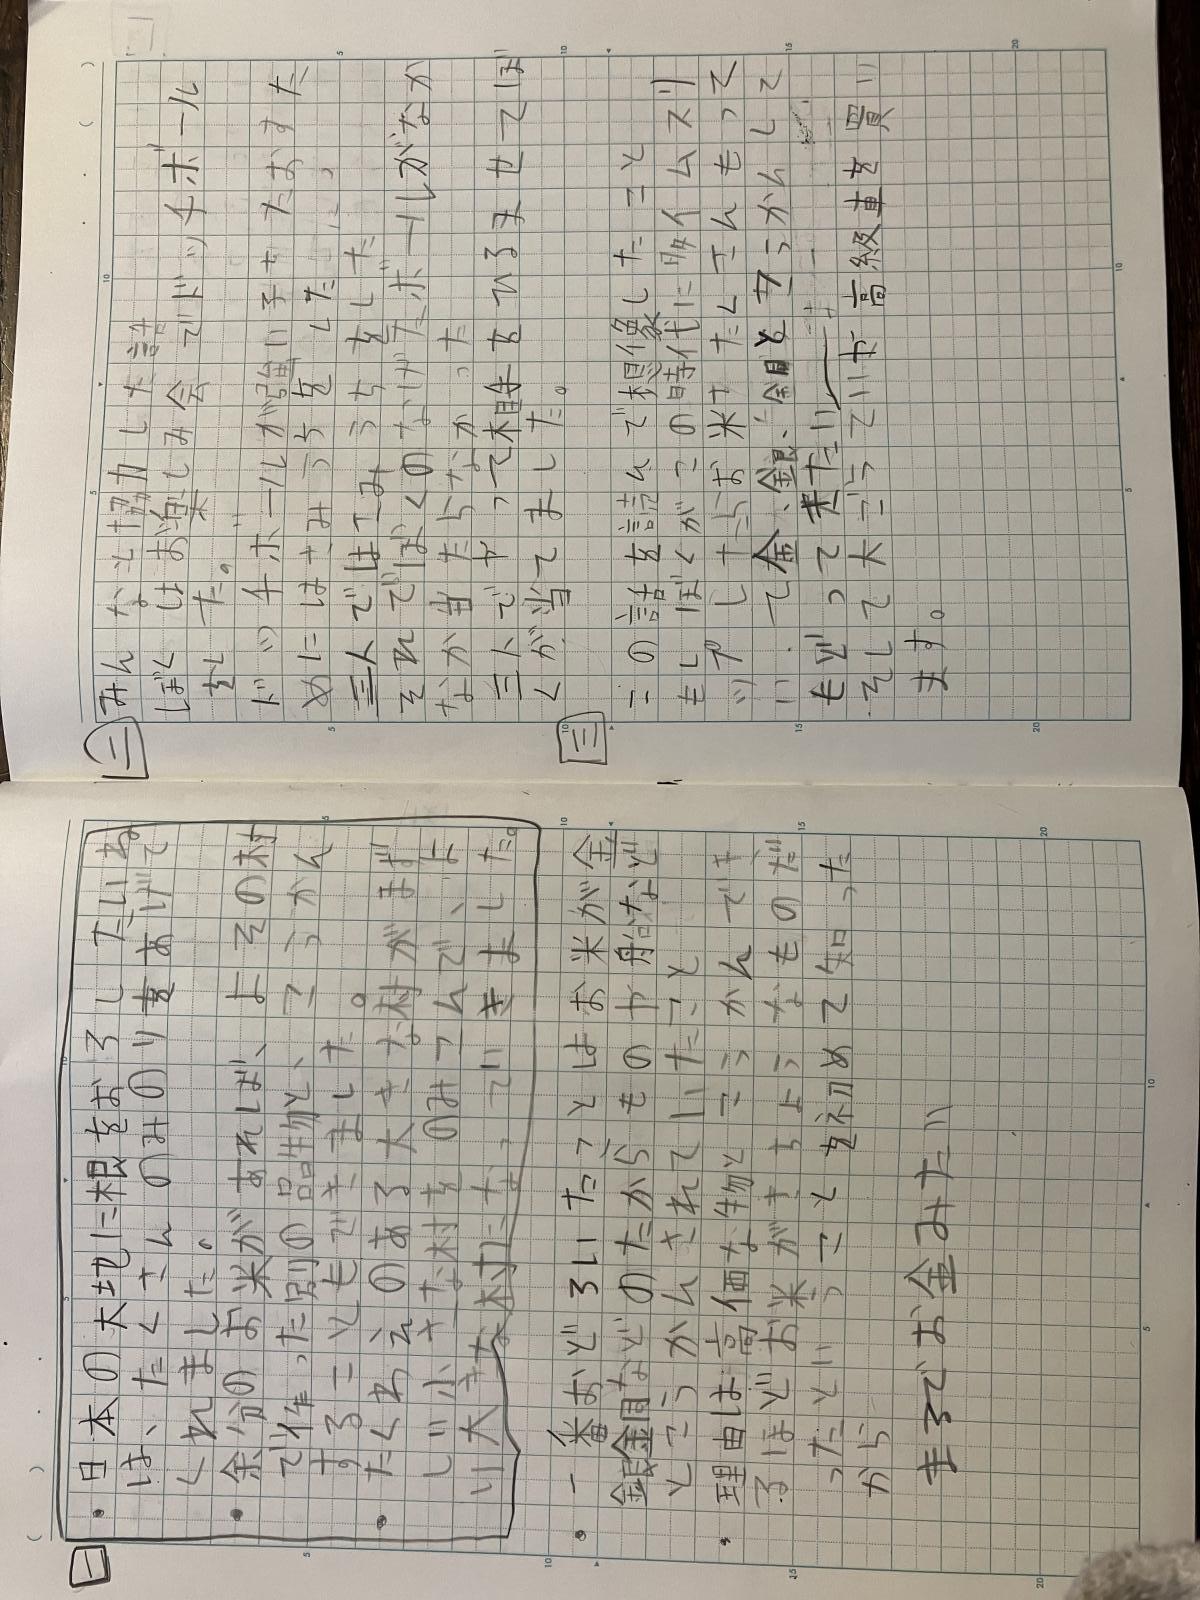 一
・日本の大地に根をおろしたいね
は、たくさんのみのりをあげて
くれました。
・余分のお米があれば、よその村
で作った別の品物と、こうかん
することもできました。
・たくわえのある大きな村がまず
しい小さな村をのみこんで、よ
い大きな村になっていきました。
・一番おどろいたことはお米が金
銀銅などのたからものや船など
とこうかんされていたこと
・理由は高価な物とこうかんでき
るほどお米がきちょうなものだ
ったということを初めて知った
から
まるでお金みたい
二
みんなと協力した話
ぼくはお楽しみ会でドッチボール
をしました。
ドッチボールが強い子をたおすた
めにはさみうちをした、
三人ではさみうちをした
それでぼくのなげたボールがなか
なか当たらなかった
三人でやって相手をひるませてぼ
くが当てました。
三
この話を読んで想像したこと
もしぼくがこの時代にタイムスリ
ップしたらお米をたくさんもって
いて金、銀、銅と交かんして
もどって来たり
そして大ごうていや高級車を買い
ます。